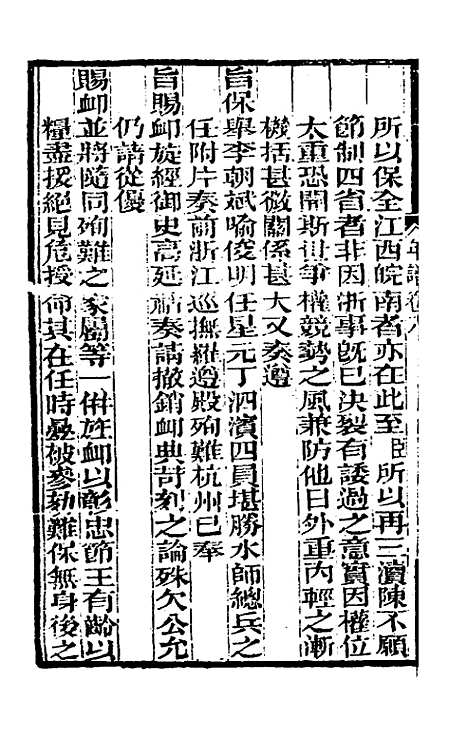 年譜卷八
所以保全江西皖南者亦在此至臣所以再三瀆陳不願
節制四省者非因浙事旣已決裂有諉過之意實因權位
太重恐開斯世爭權競勢之風兼防他日外重內輕之漸
機括甚微關係甚大又奏遵
旨保舉李朝斌喻俊明任星元丁泗濱四員堪勝水師總兵之
任附片奏前浙江巡撫羅遵殿殉難杭州已奉
旨賜卹旋經御史高延祜奏請撤銷卹典苛刻之論殊欠公允
仍請從優
賜卹並將隨同殉難之家屬等一併旌卹以彰忠節王有齡以
糧盡援絕見危授命其在任時疊被參劾難保無身後之